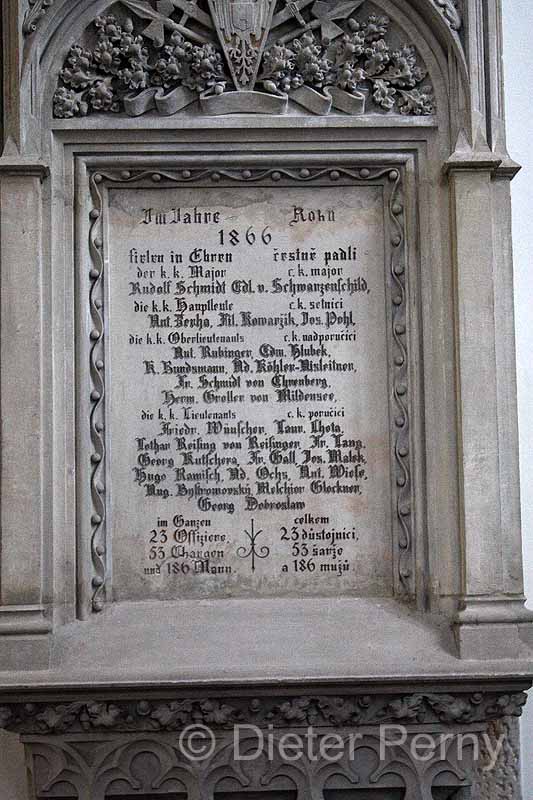 Im Jahre Roku
1866
fielen in Ehren čestně padli
der k. k. Major c. k. major
Rudolf Schmidt Edl. v. Schwanzenschild,
die k. k. Hauptleute c. k. setníci
Ant. Fil. Kowaržik, Jos. Pohl,
die k. k. Oberlieutenants c. k. nadporučíci
Ant. Rubinger, Edm. Hlubek,
K. Hundsmann, Ad. Köhler-Aisleitner,
Fr. Schmidt von Ehrenberg,
Herm. Groller von Mildensee,
die k. k. Lieutenants c. k. poručíci
Friedr. Wünscher, Laur. Lhota,
Lothar Reising von Reisinger, Fr. Lang,
Georg Kutschera, Fr. Gall, Jos. Malek,
Hugo Ramisch, Ad. Ochs, Ant. Wiese,
Aug. Bystromovský, Melchior Glockner,
Georg Dobroslaw
im Ganzen celkem
23 Offiziere 23 důstojníci,
53 Chargen 53 šarže
und 186 Mann. a 186 mužů.
© Dieter Perny